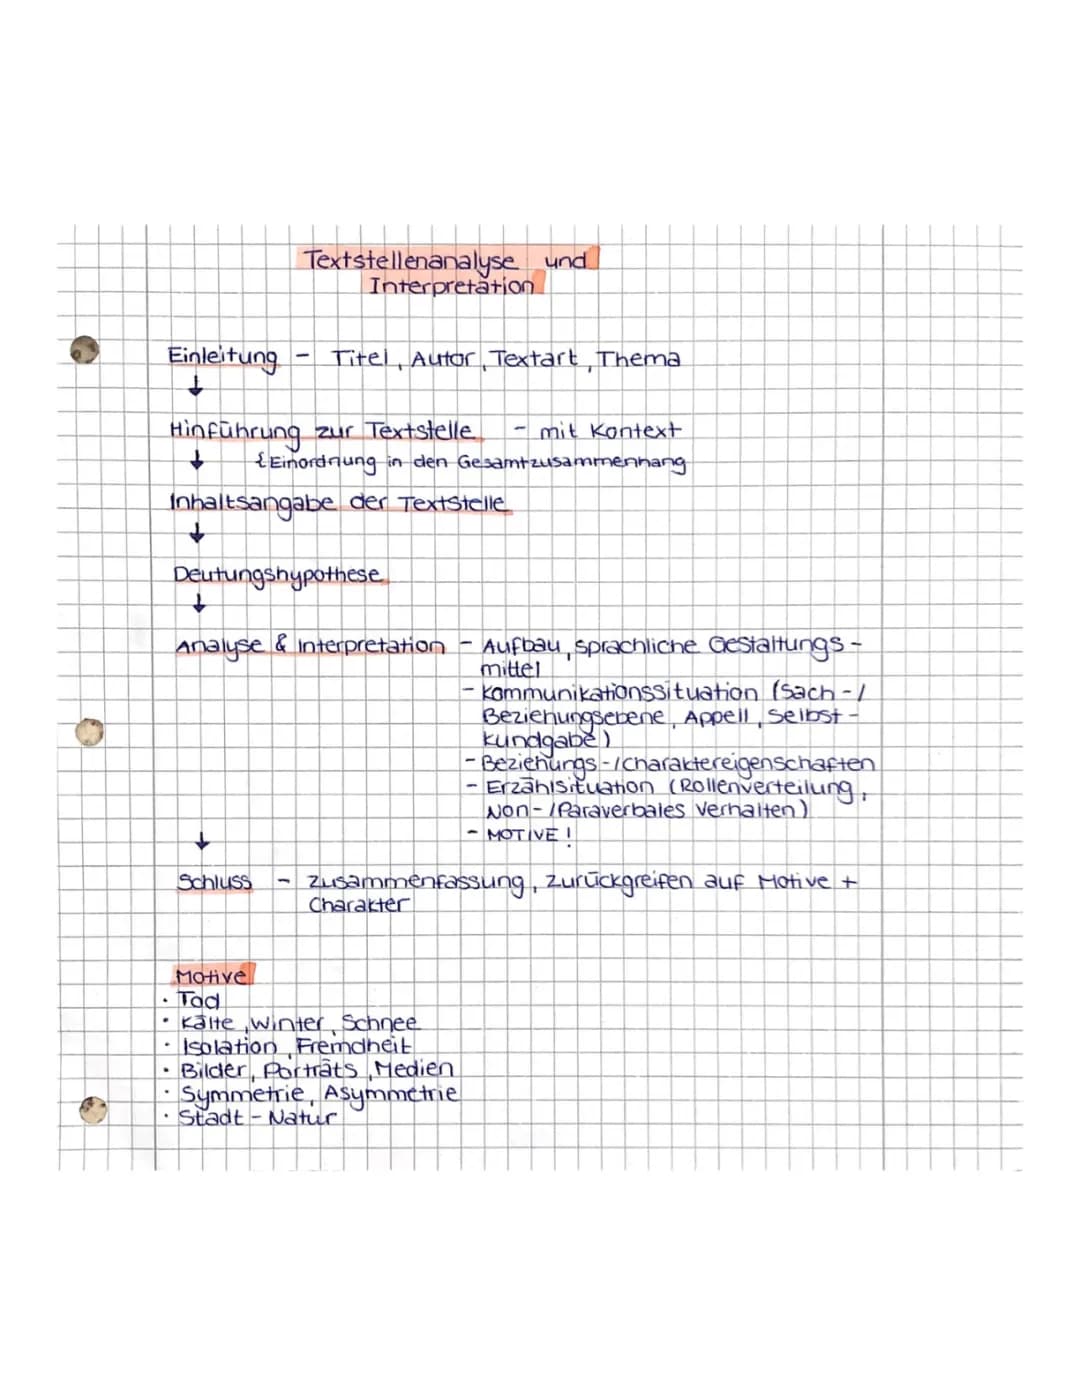 Textstellenanalyse und
Interpretation
Einleitung - Titel, Autor, Textart, Thema
↓
Hinführung zur Textstelle - mit Kontext
↓ {Einordnung in den Gesamtzusammenhang
Inhaltsangabe der Textstelle
↓
Deutungshypothese
↓
Analyse & Interpretation - Aufbau, sprachliche Gestaltungs-
mittel
- Kommunikationssituation (Sach-/
Beziehungsebene, Appell, Selbst-
kundgabe)
- Beziehungs-/Charaktereigenschaften
- Erzählsituation (Rollenverteilung,
Non-/Paraverbales Verhalten)
- MOTIVE!
↓
Schluss - Zusammenfassung, Zurückgreifen auf Motive +
Charakter
Motive
• Tod
• Kälte, Winter, Schnee
• Isolation, Fremdheit
• Bilder, Porträts, Medien
• Symmetrie, Asymmetrie
• Stadt - Natur